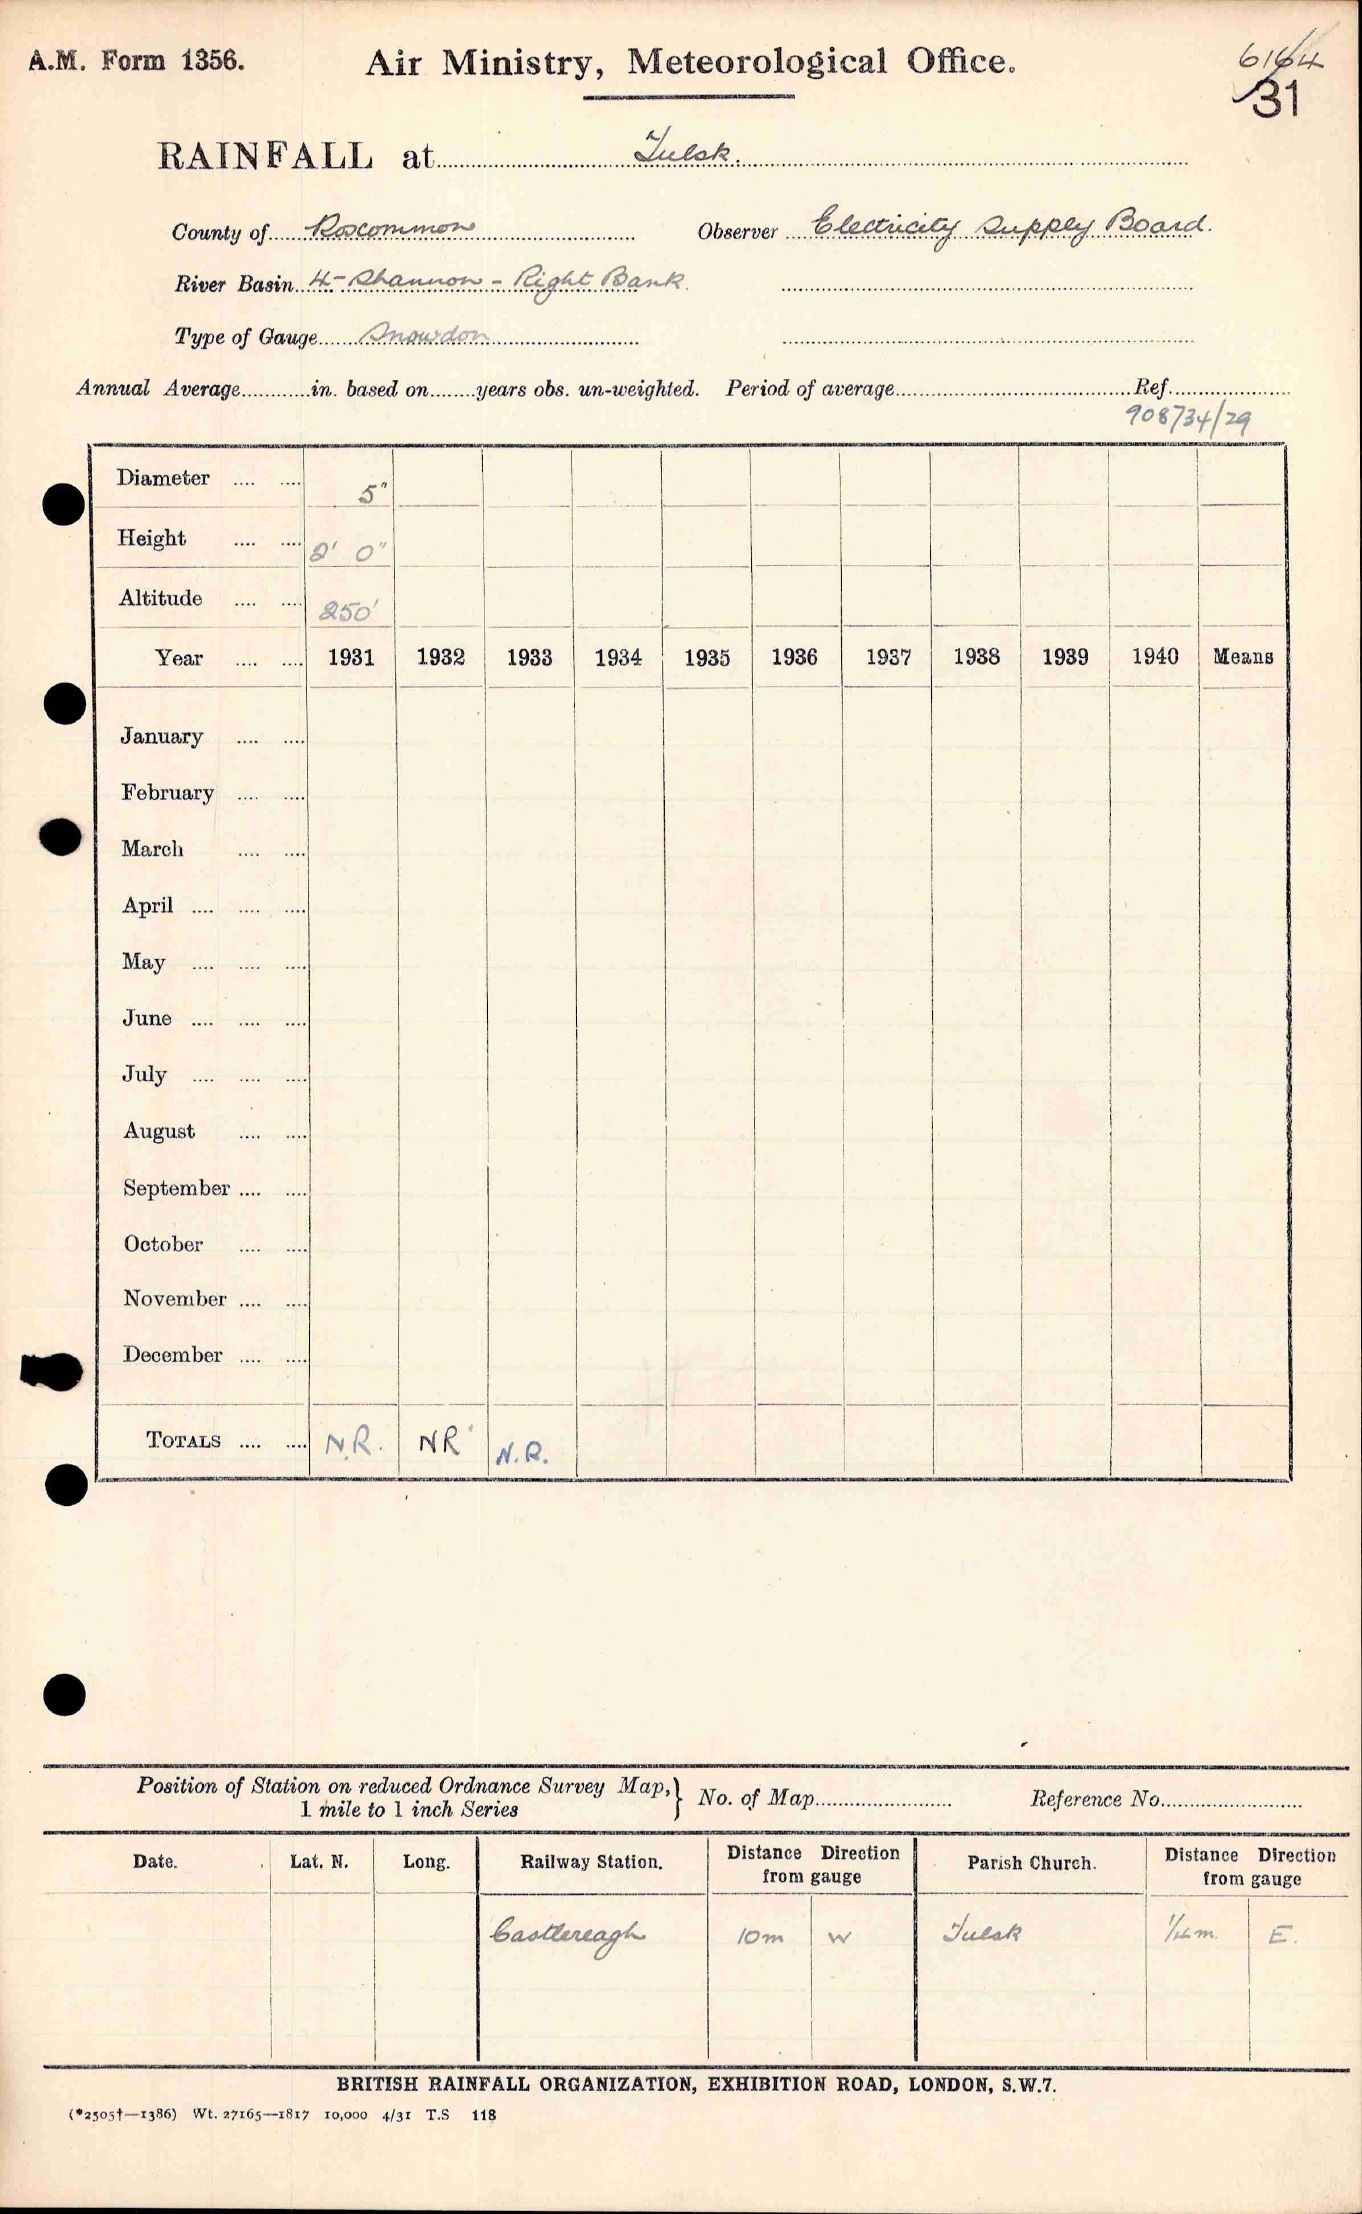 A.M. Form 1356.
Air Ministry, Meteorological Office.
6164
31
RAINFALL at Tulsk.
County of Roscommon Observer Electricity Supply Board.
River Basin 4 - Shannon - Right Bank.
Type of Gauge Snowdon
Annual Average in. based on years obs. un-weighted. Period of average Ref.
908734/29
Diameter 5"
Height 2' 0"
Altitude 250'
Year 1931 1932 1933 1934 1935 1936 1937 1938 1939 1940 Means
January
February
March
April
May
June
July
August
September
October
November
December
TOTALS N.R. NR N.R.
Position of Station on reduced Ordnance Survey Map, 1 mile to 1 inch Series } No. of Map Reference No.
Date. Lat. N. Long. Railway Station. Distance Direction from gauge Parish Church. Distance Direction from gauge
Castlereagh 10m W Tulsk 1/4 m. E.
BRITISH RAINFALL ORGANIZATION, EXHIBITION ROAD, LONDON, S.W.7.
(*2505†—1386) Wt. 27165—1817 10,000 4/31 T.S 118